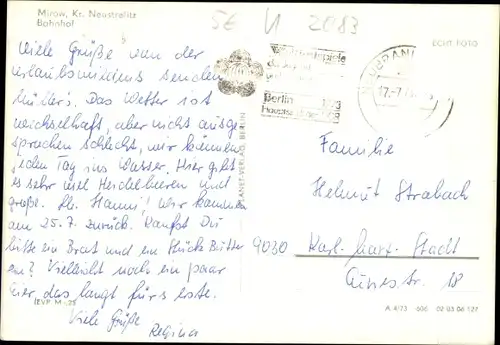 Mirow, Kr. Neustrelitz
Bahnhof
SE VI 2083
ECHT FOTO
Viele Grüße von der
Urlaubs senden
Müller's. Das Wetter ist
wechselhaft, aber nicht ausge
sprochen schlecht, wir können
jeden Tag ins Wasser. Hier gibt
es sehr viel Heidelbeeren und
große. Lb. Hanni! Wir kommen
am 25.7. zurück. Kaufst Du
bitte ein Brot und ein Stück Butter
ein? Vielleicht noch ein paar
Eier das langt fürs erste.
Viele Grüße
Regina
Berlin
17.-7
PLANET-VERLAG BERLIN
Familie
Helmut Strabach
9030 Karl-Marx-Stadt
str. 18
(EVP: M -,25
A 4/73 606 02 03 06 127